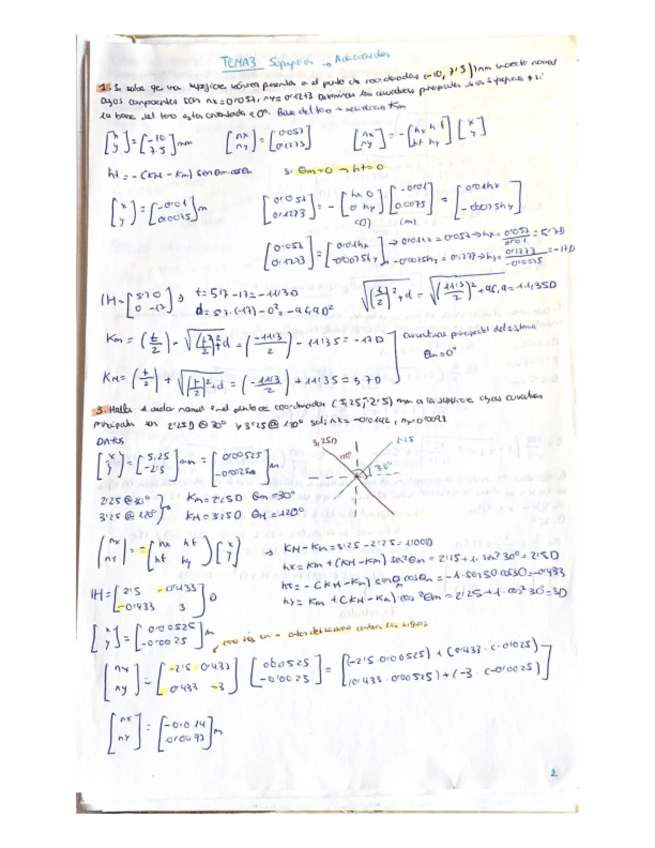 TEMA 3 Superficies → Adicionales
1. Se sabe que una superficie tórica presenta en el punto de coordenadas (-10, 7'5) mm un vecto normal
cuyas componentes son nx=0'057, ny=0'1273. Determina las curvaturas principales de la superficie si
la base del toro esta orientada a 0º. Base del toro → Km
[x y] = [-10 7.5] mm [nx ny] = [0'057 0'1273] [nx ny] = -[hx ht ht hy] [x y]
ht = -(KM - Km) senθm cosθm si θm=0 → ht=0
[x y] = [-0'01 0'0075] m [0'057 0'1273] = -[hx 0 0 hy] [-0'01 0.0075] = [0'01hx -0'0075hy]
(D) (m)
[0'057 0'1273] = [0'01hx -0'0075hy] → 0'01hx = 0'057 → hx = 0'057/0'01 = 5'7D
-0'0075hy = 0'1273 → hy = 0'1273/-0'0075 = -17D
IH = [5'7 0 0 -17] t = 5'7-17 = -11'3D
d = 5'7·(-17)-0² = -96'9D²
√((t/2)²+d) = √((11'3/2)²+96,9) = 11'35D
Km = (t/2) - √((t/2)²+d) = (-11'3/2) - 11'35 = -17D
KM = (t/2) + √((t/2)²+d) = (-11'3/2) + 11'35 = 5,7D
curvaturas principales del sistema
θm=0º
3. Halla el vector normal en el punto de coordenadas (5,25,-2'5) mm a la superficie cuyas curvaturas
principales son 2'25D @ 30º y 3'25 @ 120º
DATOS
[x y] = [5,25 -2'5] mm = [0'00525 -0'0025] m
3,25D 2'25
120º 30º
2'25 @ 30º Km = 2'25D θm = 30º
3'25 @ 120º KM = 3'25D θM = 120º
[nx ny] = -[hx ht ht hy] [x y] → KM - Km = 3'25 - 2'25 = 1'00D
hx = Km + (KM - Km) sen²θm = 2'25 + 1·sen²30º = 2'5D
ht = -(KM - Km) senθm cosθm = -1·sen30 cos30 = -0'433
hy = Km + (KM - Km) cos²θm = 2'25 + 1·cos²30º = 3D
IH = [2'5 -0'433 -0'433 3] D
[x y] = [0'00525 -0'0025] m
[nx ny] = [-2'5 0'433 0'433 -3] [0'00525 -0'0025] = [(-2'5·0'00525) + (0'433·(-0'0025) (0'433·0'00525) + (-3·(-0'0025)]
[nx ny] = [-0'014 0'0097] m
2